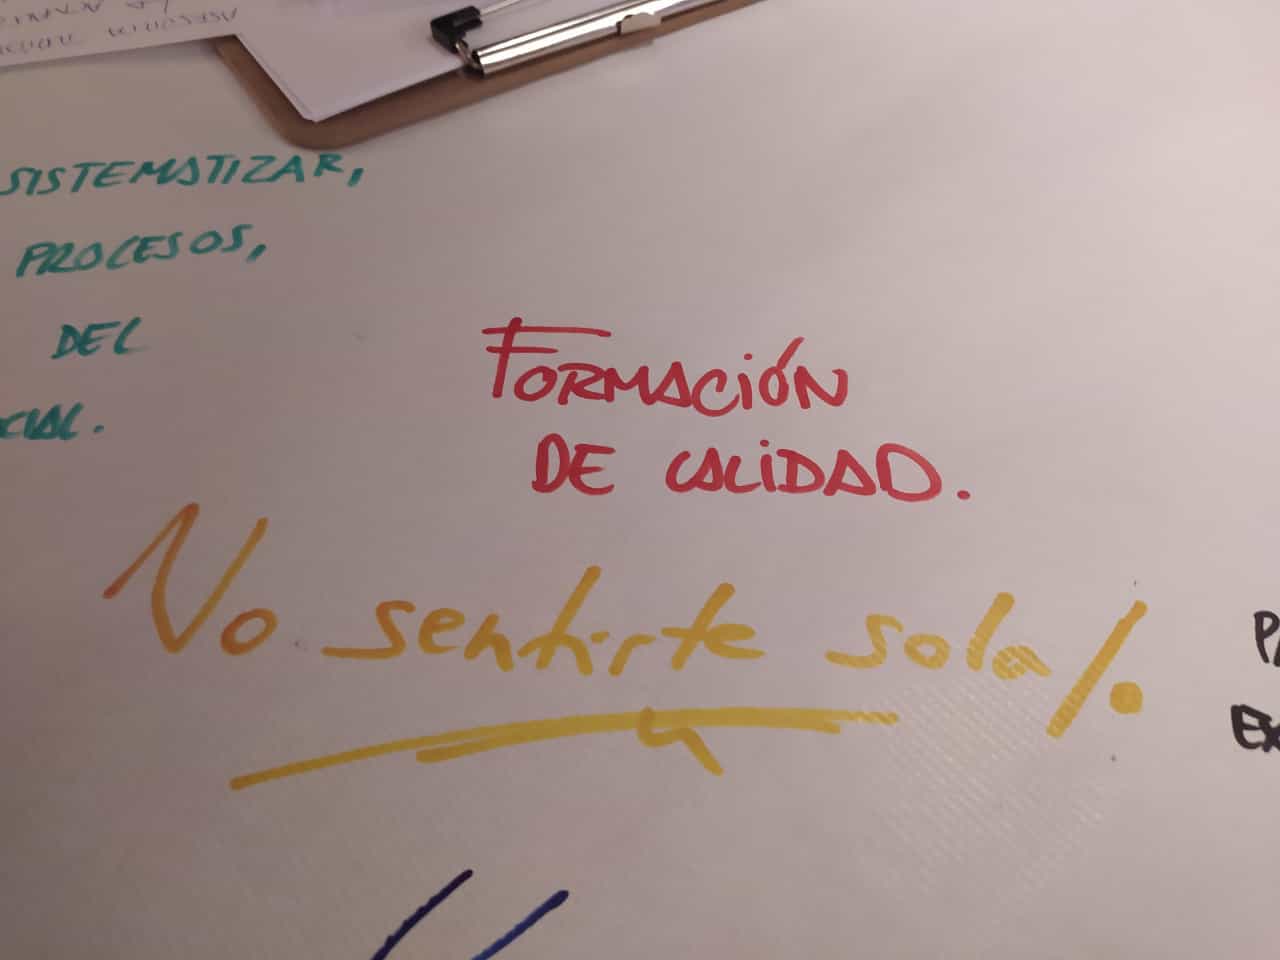 SISTEMATIZAR,
PROCESOS,
DEL
FORMACIÓN
DE CALIDAD.
No sentirte sola/.